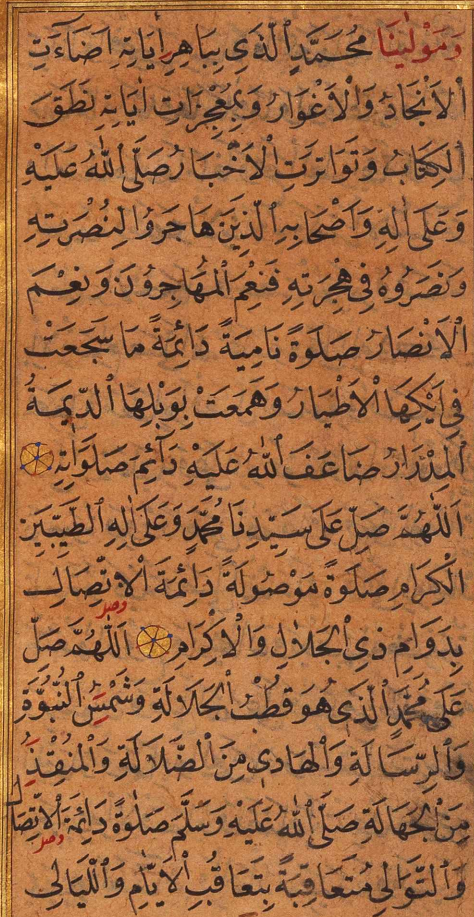 وَمَوْلٰينَا مُحَمَّدٍ ٱلَّذِى بِبَاهِرِ اٰيَاتِهِ اَضَآءَتِ
الْاَنْجَادُ وَالْاَغْوَارُ وَبِمُعْجِزَاتِ اٰيَاتِهِ نَطَقَ
الْكِتَابُ وَتَوَاتَرَتِ الْاَخْبَارُ صَلَّى اللّٰهُ عَلَيْهِ
وَعَلٰى اٰلِهِ وَاَصْحَابِهِ ٱلَّذِينَ هَاجَرُوا لِنُصْرَتِهِ
وَنَصَرُوهُ فِى هِجْرَتِهِ فَنِعْمَ الْمُهَاجِرُونَ وَنِعْمَ
الْاَنْصَارُ صَلٰوةً نَامِيَةً دَائِمَةً مَا سَجَعَتْ
فِى اَيْكِهَا الْاَطْيَارُ وَهَمَعَتْ بِوَبْلِهَا ٱلدِّيمَةُ
الْمِدْرَارُ ضَاعَفَ اللّٰهُ عَلَيْهِ دَآئِمَ صَلَوَاتِهِ
اَللّٰهُمَّ صَلِّ عَلٰى سَيِّدِنَا مُحَمَّدٍ وَعَلٰى اٰلِهِ ٱلطَّيِّبِينَ
الْكِرَامِ صَلٰوةً مَوْصُولَةً دَائِمَةَ الْاِتِّصَالِ
وصل
بِدَوَامِ ذِى الْجَلَالِ وَالْاِكْرَامِ اَللّٰهُمَّ صَلِّ
عَلٰى مُحَمَّدٍ ٱلَّذِى هُوَ قُطْبُ الْجَلَالَةِ وَشَمْسُ ٱلنُّبُوَّةِ
وَٱلرِّسَالَةِ وَالْهَادِى مِنَ ٱلضَّلَالَةِ وَالْمُنْقِذُ
مِنَ الْجَهَالَةِ صَلَّى اللّٰهُ عَلَيْهِ وَسَلَّمَ صَلٰوةً دَائِمَةَ الْاِتِّصَالِ
وصل
وَٱلتَّوَالِى مُتَعَاقِبَةً بِتَعَاقُبِ الْاَيَّامِ وَٱللَّيَالِى